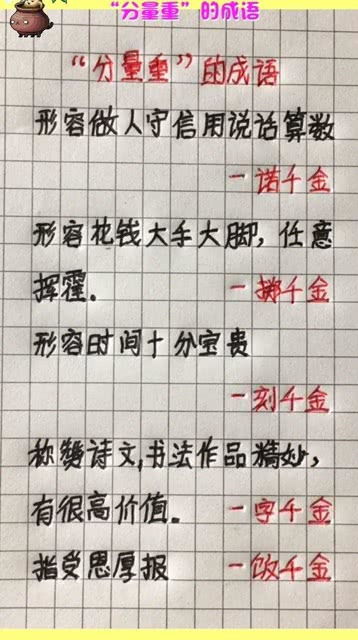 “分量重”的成语
“分量重”的成语
形容做人守信用说话算数
一诺千金
形容花钱大手大脚，任意
挥霍。 一掷千金
形容时间十分宝贵
一刻千金
称赞诗文,书法作品精妙，
有很高价值。 一字千金
指受恩厚报 一饭千金